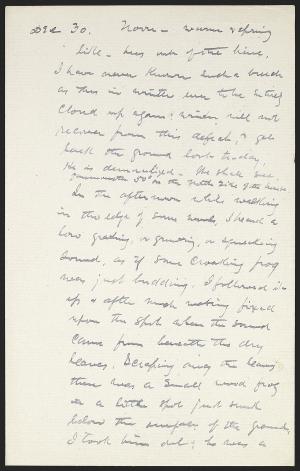 Dec 30. Noon - warm & spring
like - bees out of the hive.
I have never known such a break
as this in winter ever to be entirely
closed up again; winter will not
recover from this defeat, & get
back the ground lost to-day,
He is demoralized. We shall see.
Thermometer 50° on the north side of the house
In the afternoon while walking
in the edge of some woods, I heard a
low grating, or grunting, or squeaking
sound, as if some croaking frog
was just budding. I followed it
up & after much waiting fixed
upon the spot where the sound
came from beneath the dry
leaves. Scraping away the leaves
there was a small wood frog
in a little spot just sunk
below the surface of the ground,
I took him out; he was a